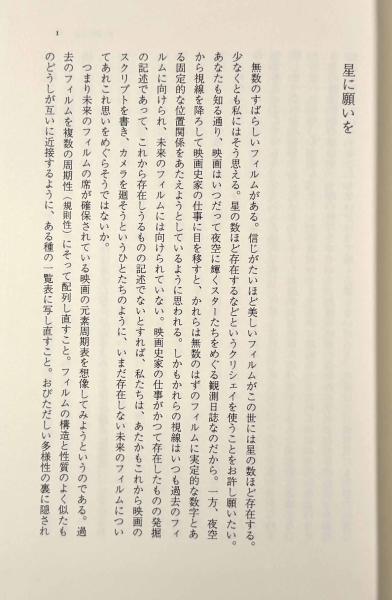 1
星に願いを
無数のすばらしいフィルムがある。信じがたいほど美しいフィルムがこの世には星の数ほど存在する。
少なくとも私にはそう思える。星の数ほど存在するなどというクリシェイを使うことをお許し願いたい。
あなたも知る通り、映画はいつだって夜空に輝くスターたちをめぐる観測日誌なのだから。一方、夜空
から視線を降ろして映画史家の仕事に目を移すと、かれらは無数のはずのフィルムに実定的な数字とあ
る固定的な位置関係をあたえようとしているように思われる。しかもかれらの視線はいつも過去のフィ
ルムに向けられ、未来のフィルムには向けられていない。映画史家の仕事がかつて存在したものの発掘
の記述であって、これから存在しうるものの記述でないとすれば、私たちは、あたかもこれから映画の
スクリプトを書き、カメラを廻そうというひとたちのように、いまだ存在しない未来のフィルムについ
てあれこれ思いをめぐらそうではないか。
つまり未来のフィルムの席が確保されている映画の元素周期表を想像してみようというのである。過
去のフィルムを複数の周期性（規則性）にそって配列し直すこと。フィルムの構造と性質のよく似たも
のどうしが互いに近接するように、ある種の一覧表に写し直すこと。おびただしい多様性の裏に隠され